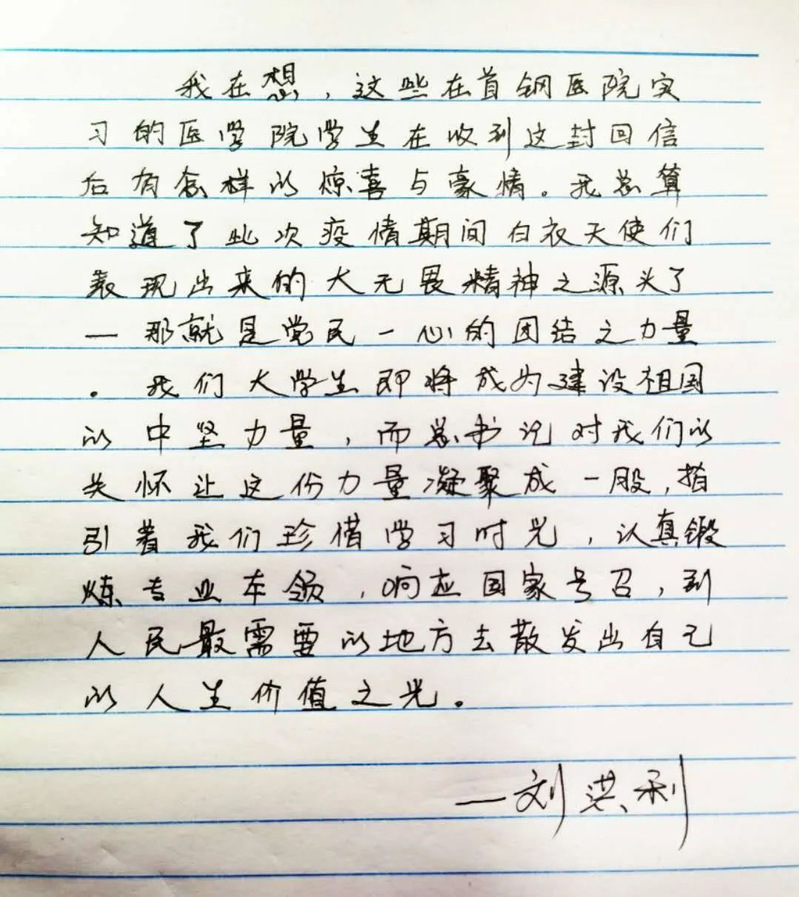 我在想，这些在首钢医院实
习的医学院学生在收到这封回信
后有怎样的惊喜与豪情。我总算
知道了此次疫情期间白衣天使们
表现出来的大无畏精神之源头了
—那就是党民一心的团结之力量
。我们大学生即将成为建设祖国
的中坚力量，而总书记对我们的
关怀让这份力量凝聚成一股，指
引着我们珍惜学习时光，认真锻
炼专业本领，响应国家号召，到
人民最需要的地方去散发出自己
的人生价值之光。
—刘洪利